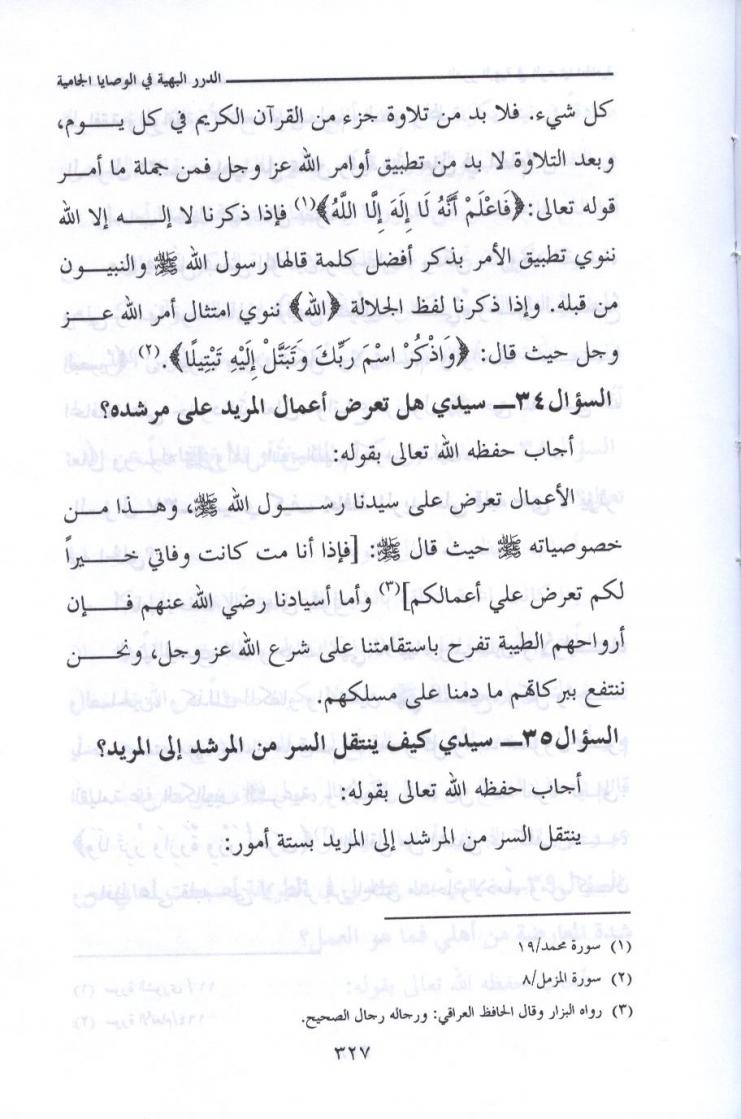 الدرر البهية في الوصايا الجامية
كل شيء. فلا بد من تلاوة جزء من القرآن الكريم في كل يـــوم،
وبعد التلاوة لا بد من تطبيق أوامر الله عز وجل فمن جملة ما أمــر
قوله تعالى: ﴿فَاعْلَمْ أَنَّهُ لَا إِلَهَ إِلَّا اللَّهُ﴾(١) فإذا ذكرنا لا إلـــه إلا الله
ننوي تطبيق الأمر بذكر أفضل كلمة قالها رسول الله ﷺ والنبيــون
من قبله. وإذا ذكرنا لفظ الجلالة ﴿الله﴾ ننوي امتثال أمر الله عـــز
وجل حيث قال: ﴿وَاذْكُرْ اسْمَ رَبِّكَ وَتَبَتَّلْ إِلَيْهِ تَبْتِيلًا﴾.(٢)
السؤال ٣٤ــ سيدي هل تعرض أعمال المريد على مرشده؟
أجاب حفظه الله تعالى بقوله:
الأعمال تعرض على سيدنا رســـول الله ﷺ، وهـــذا مـــن
خصوصياته ﷺ حيث قال ﷺ: [فإذا أنا مت كانت وفاتي خـــيراً
لكم تعرض علي أعمالكم](٣) وأما أسيادنا رضي الله عنهم فـــإن
أرواحهم الطيبة تفرح باستقامتنا على شرع الله عز وجل، ونحـــن
ننتفع ببركاتهم ما دمنا على مسلكهم.
السؤال ٣٥ــ سيدي كيف ينتقل السر من المرشد إلى المريد؟
أجاب حفظه الله تعالى بقوله:
ينتقل السر من المرشد إلى المريد بستة أمور:
(١) سورة محمد/١٩
(٢) سورة المزمل/٨
(٣) رواه البزار وقال الحافظ العراقي: ورجاله رجال الصحيح.
٣٢٧